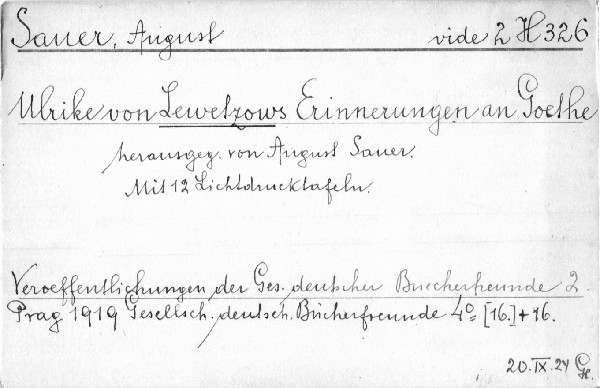 Sauer, August vide 2 H 326
Ulrike von Lewetzows Erinnerungen an Goethe
herausgeg. von August Sauer.
Mit 12 Lichtdrucktafeln.
Veroeffentlichungen der Ges. deutscher Buecherfreunde 2.
Prag 1919 Gesellsch. deutsch. Bücherfreunde 4º [16.]+76.
20.IX.24